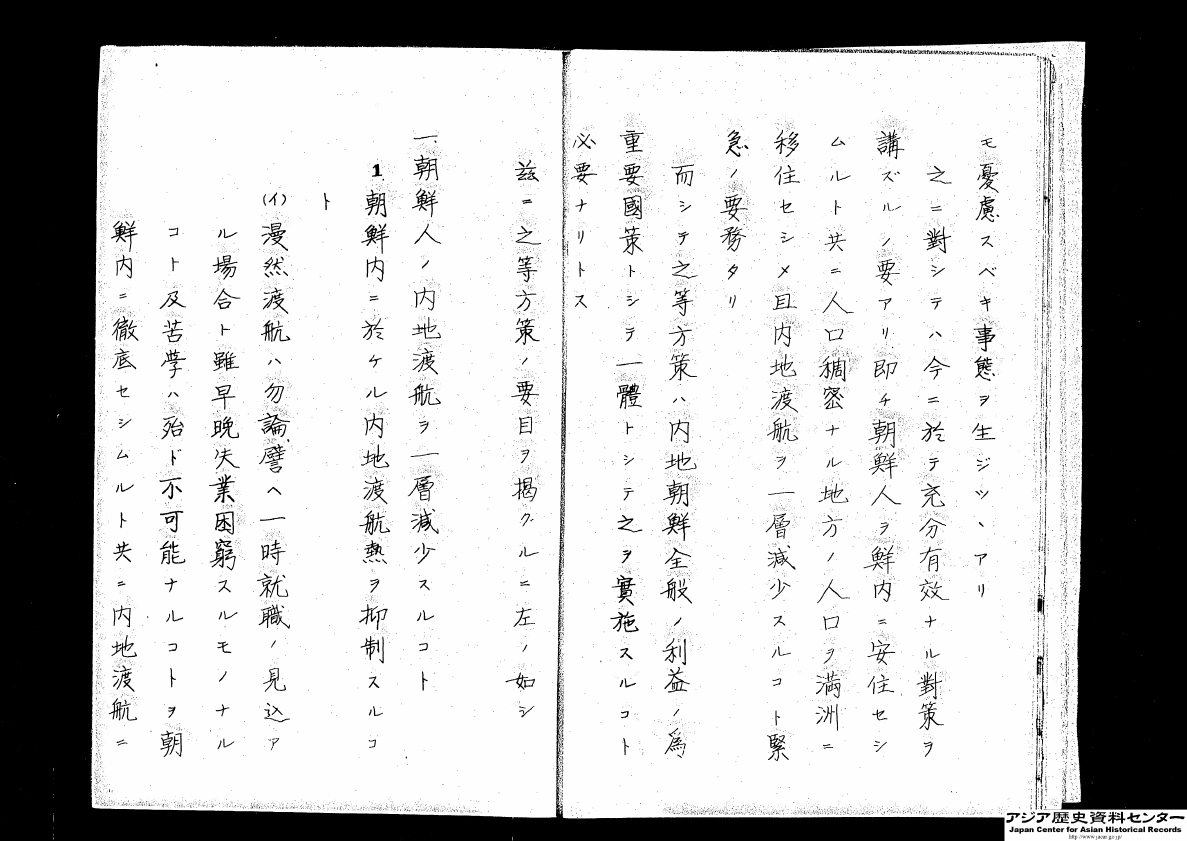 モ憂慮スベキ事態ヲ生ジツヽアリ
之ニ對シテハ今ニ於テ充分有效ナル對策ヲ
講ズルノ要アリ即チ朝鮮人ヲ鮮内ニ安住セシ
ムルト共ニ人口稠密ナル地方ノ人口ヲ滿洲ニ
移住セシメ且内地渡航ヲ一層減少スルコト緊
急ノ要務タリ
而シテ之等方策ハ内地朝鮮全般ノ利益ノ爲
重要國策トシテ一體トシテ之ヲ實施スルコト
必要ナリトス
玆ニ之等方策ノ要目ヲ揭グルニ左ノ如シ
一、朝鮮人ノ内地渡航ヲ一層減少スルコト
1.朝鮮内ニ於ケル内地渡航熱ヲ抑制スルコ
ト
(イ)漫然渡航ハ勿論、譬ヘ一時就職ノ見込ア
ル場合ト雖早晩失業困窮スルモノナル
コト及苦學ハ殆ド不可能ナルコトヲ朝
鮮内ニ徹底セシムルト共ニ内地渡航ニ
アジア歴史資料センター
Japan Center for Asian Historical Records
http://www.jacar.go.jp/